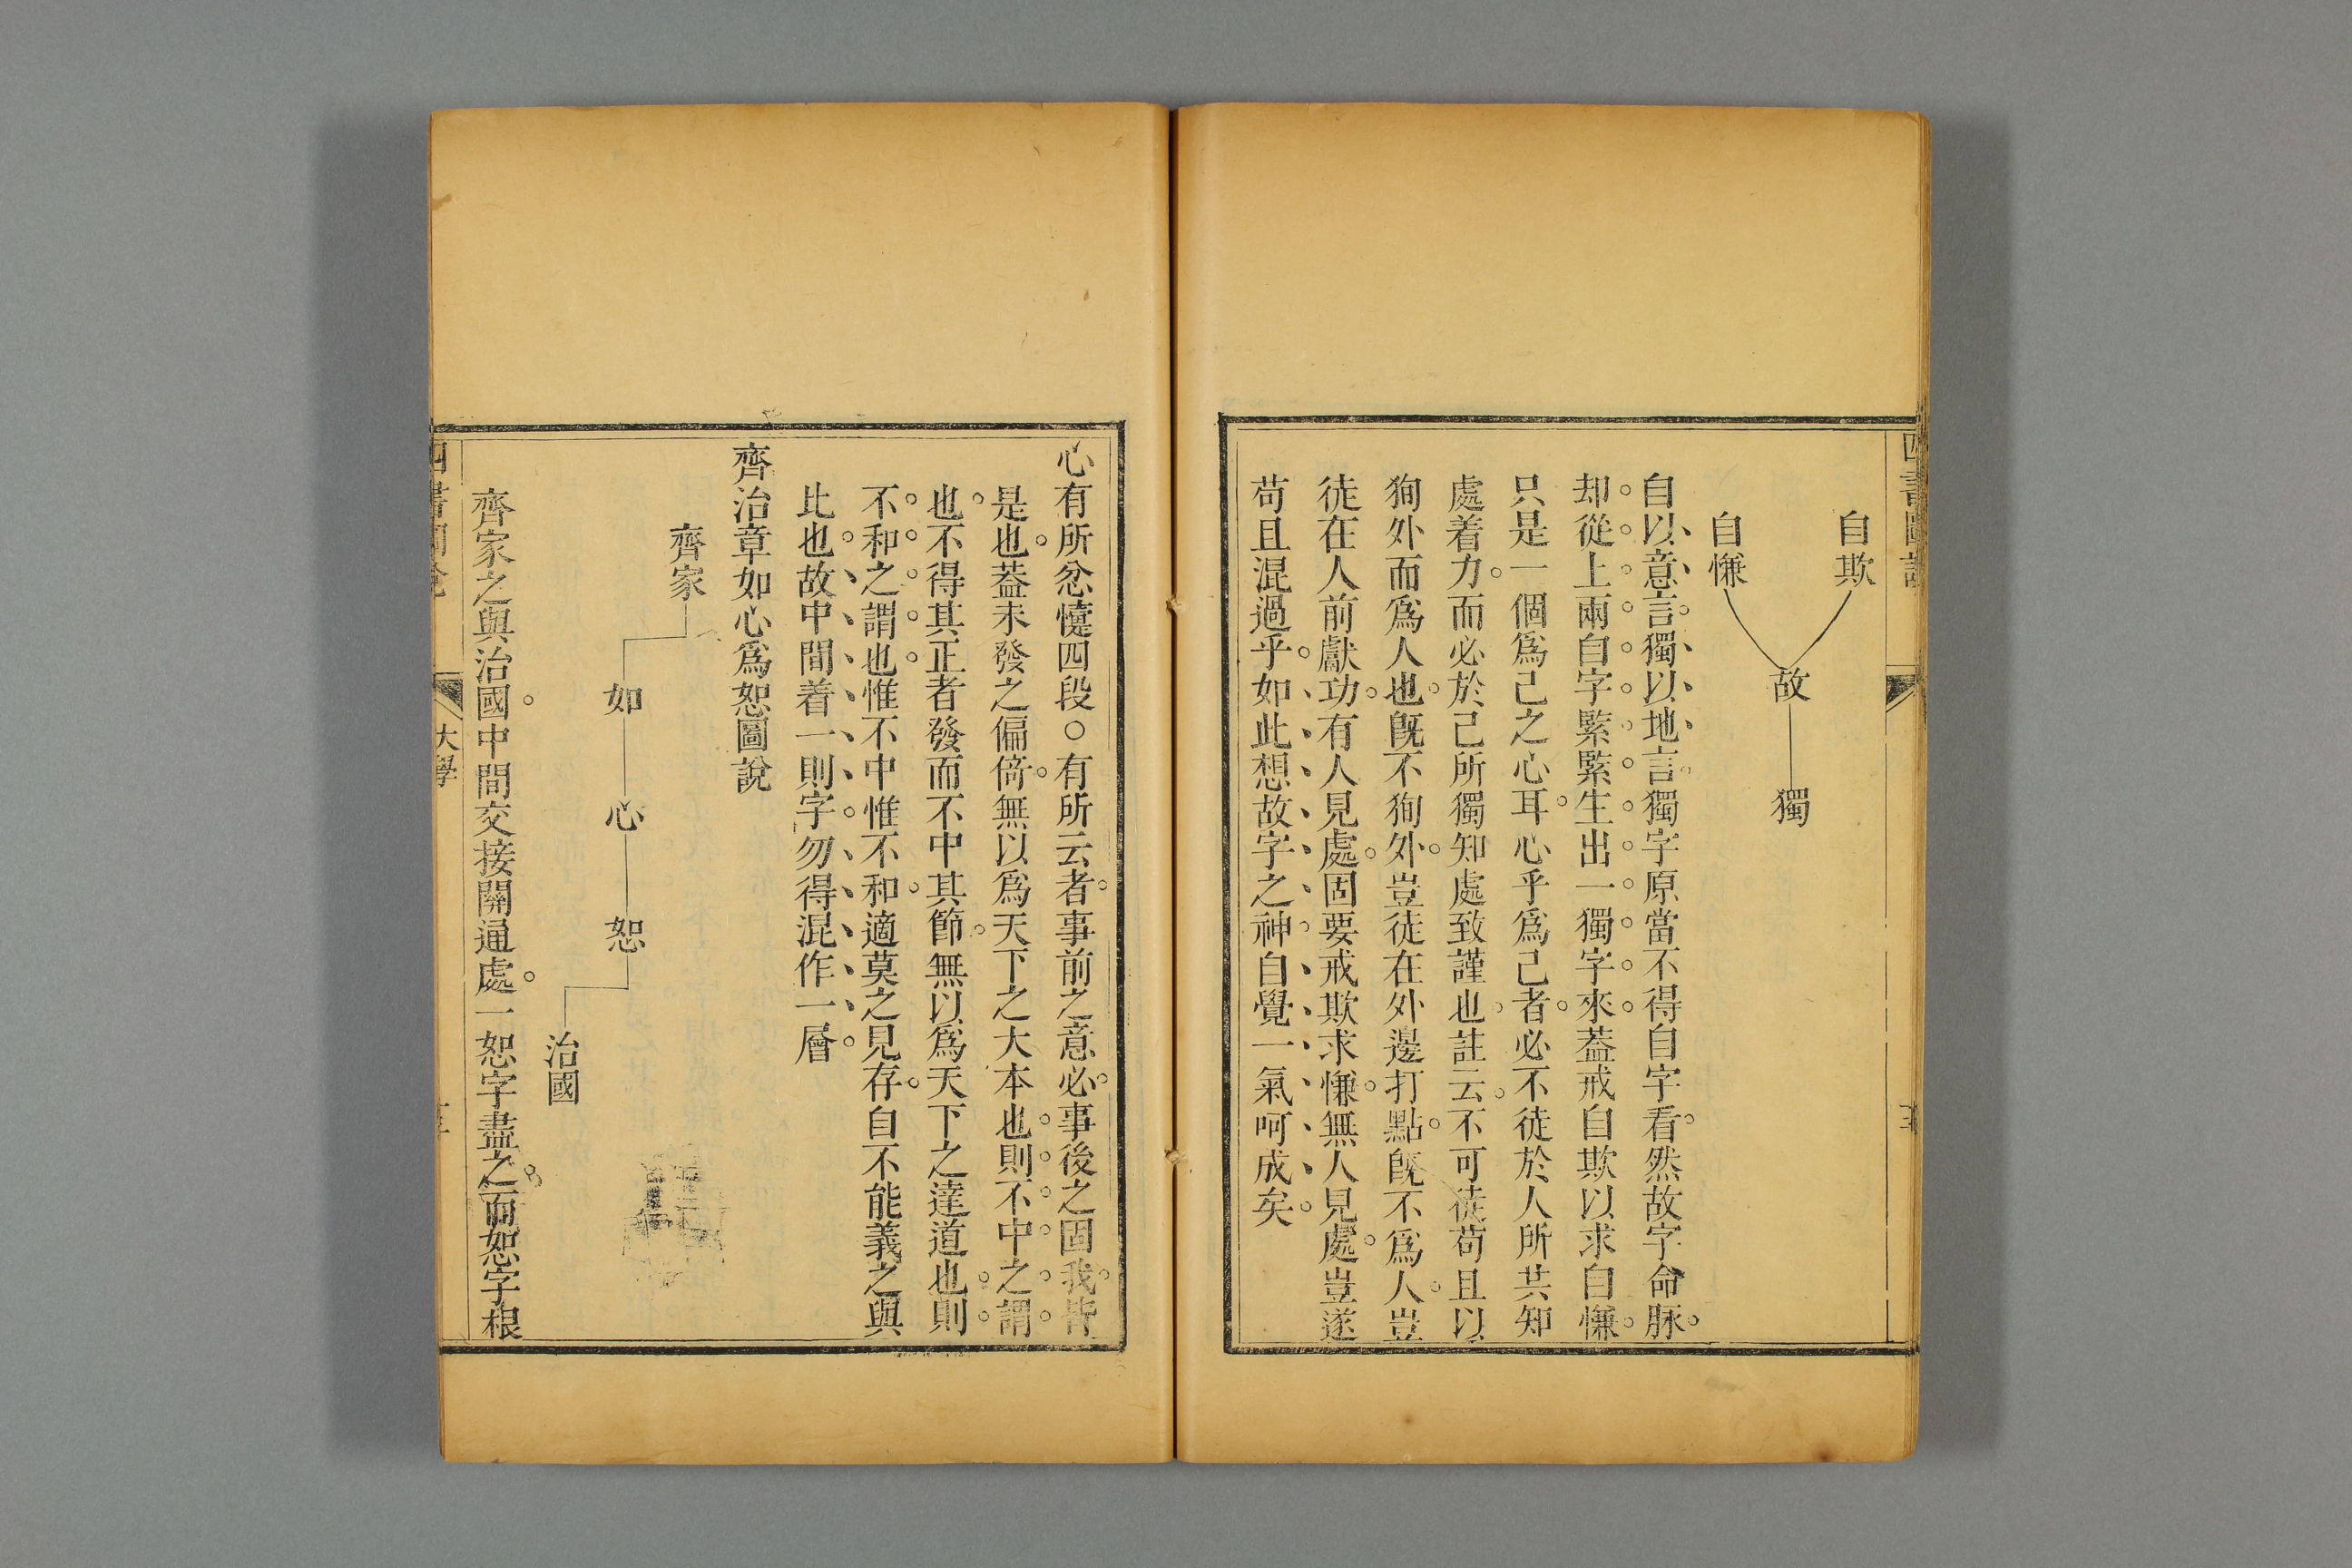 四書圖說
自欺
故
獨
自慊
自以意言獨以地言獨字原當不得自字看然故字命脈
却從上兩自字緊緊生出一獨字來葢戒自欺以求自慊
只是一個爲己之心耳心乎爲己者必不徒於人所共知
處着力而必於己所獨知處致謹也註云不可徒苟且以
狥外而爲人也旣不狥外豈徒在外邊打點旣不爲人豈
徒在人前獻功有人見處固要戒欺求慊無人見處豈遂
苟且混過乎如此想故字之神自覺一氣呵成矣
心有所忿懥四段○有所云者事前之意必事後之固我皆
是也葢未發之偏倚無以爲天下之大本也則不中之謂
也不得其正者發而不中其節無以爲天下之達道也則
不和之謂也惟不中惟不和適莫之見存自不能義之與
比也故中間着一則字勿得混作一層
齊治章如心爲恕圖說
齊家
如
心
恕
治國
齊家之與治國中間交接關通處一恕字盡之而恕字根
四書圖說
大學